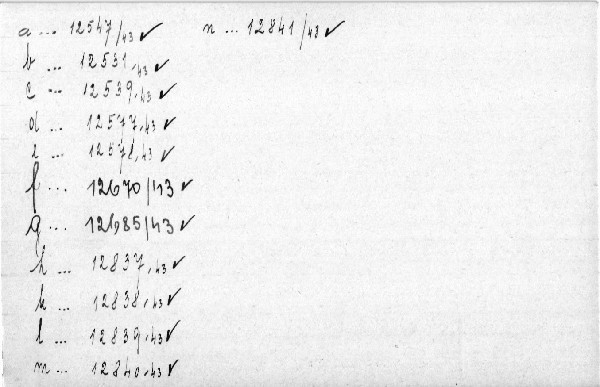 a ... 12547/43 ✓ n ... 12841/43 ✓
b ... 12531/43 ✓
c ... 12539/43 ✓
d ... 12577/43 ✓
e ... 12578/43 ✓
f ... 12670/43 ✓
g ... 12685/43 ✓
h ... 12837/43 ✓
k ... 12838/43 ✓
l ... 12839/43 ✓
m ... 12840/43 ✓